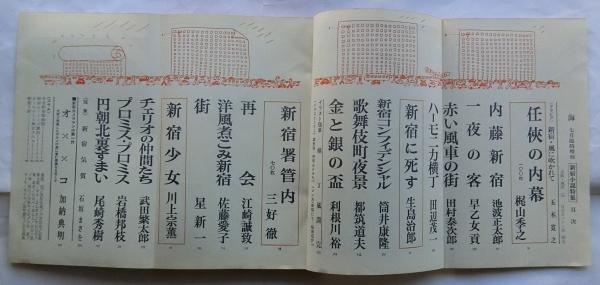 海 七月臨時増刊 新宿小説特集 目次
新宿・風に吹かれて 五木寛之
任俠の内幕 一〇〇枚 梶山季之
内藤新宿 池波正太郎
一夜の客 早乙女貢
赤い風車の街 田村泰次郎
ハーモニカ横丁 田辺茂一
新宿に死す 生島治郎
新宿コンフィデンシャル 筒井康隆
歌舞伎町夜景 都筑道夫
金と銀の盃 利根川裕
新宿署管内 七〇枚 三好徹
再会 江崎誠致
洋風煮ごみ新宿 佐藤愛子
街 星新一
新宿少女 川上宗薫
チェリオの仲間たち 武田繁太郎
プロミス・プロミス 岩橋邦枝
円朝北裏ずまい 尾崎秀樹
新宿気質 石川まさを
オ×××コ 加納典明